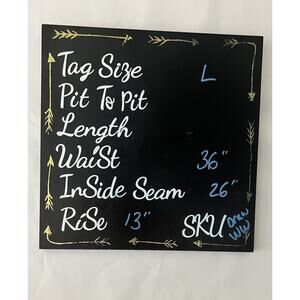 Tag Size L
Pit To Pit
Length
WaiSt 36"
InSide Seam 26"
RiSe 13" SKU
WW